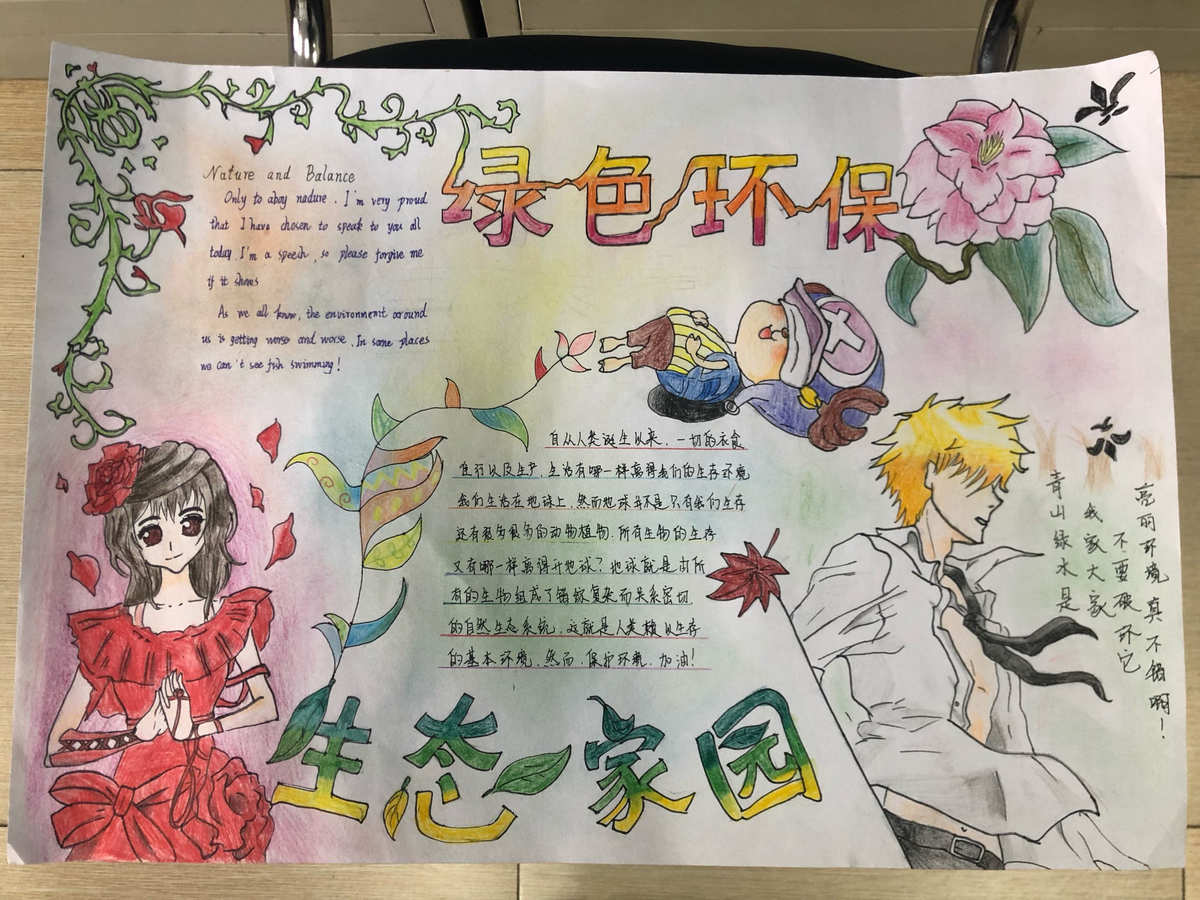 绿色环保
Nature and Balance
Only to abay nadure. I'm very proud
that I have chosen to speak to you all
today. I'm a speech, so please forgive me
if it shows
As we all know, the environment around
us is getting worse and worse. In some places
we can't see fish swimming!
自从人类诞生以来，一切的衣食
住行以及生产，生活有哪一样离得我们的生存环境
我们生活在地球上，然而地球并不是只有我们生存
还有很多很多的动物植物.所有生物的生存
又有哪一样离得开地球？地球就是由所
有的生物组成了错综复杂而关系密切
的自然生态系统，这就是人类赖以生存
的基本环境.然而，保护环境，加油！
亮丽环境真不错啊！
不要破坏它
我家大家
青山绿水是
生态家园